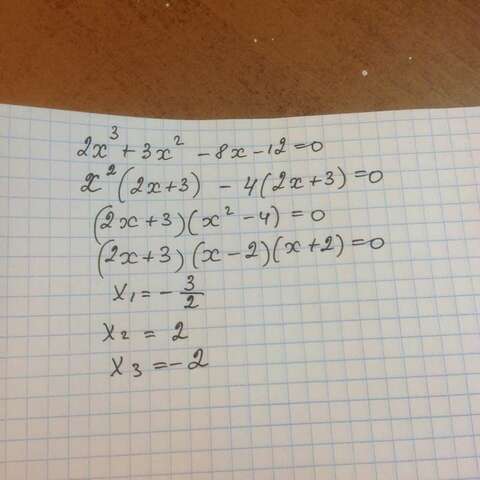 2x³ + 3x² - 8x - 12 = 0
x²(2x+3) - 4(2x+3) = 0
(2x+3)(x² - 4) = 0
(2x+3)(x-2)(x+2) = 0
x₁ = - 3/2
x₂ = 2
x₃ = -2